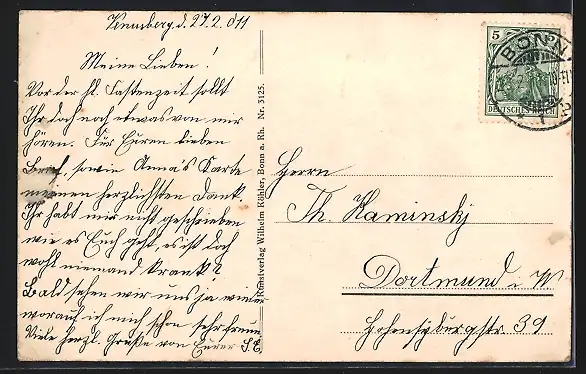 Venusberg d. 27.2.011
Meine Lieben!
Vor der hl. Fastenzeit sollt
Ihr doch noch etwas von mir
hören. Für Euren lieben
Brief, sowie Anna's Karte
meinen herzlichsten Dank.
Ihr habt mir nicht geschrieben
wie es Euch geht, es ist doch
wohl niemand krank?
Bald sehen wir uns ja wieder
worauf ich mich schon sehr freue.
Viele herzl. Grüße von Eurer S.E.
Kunstverlag Wilhelm Köhler, Bonn a. Rh. Nr. 3125.
5
DEUTSCHES REICH
BONN
Herrn
Th. Kaminsky
Dortmund i. W
Hohensyburgstr. 39